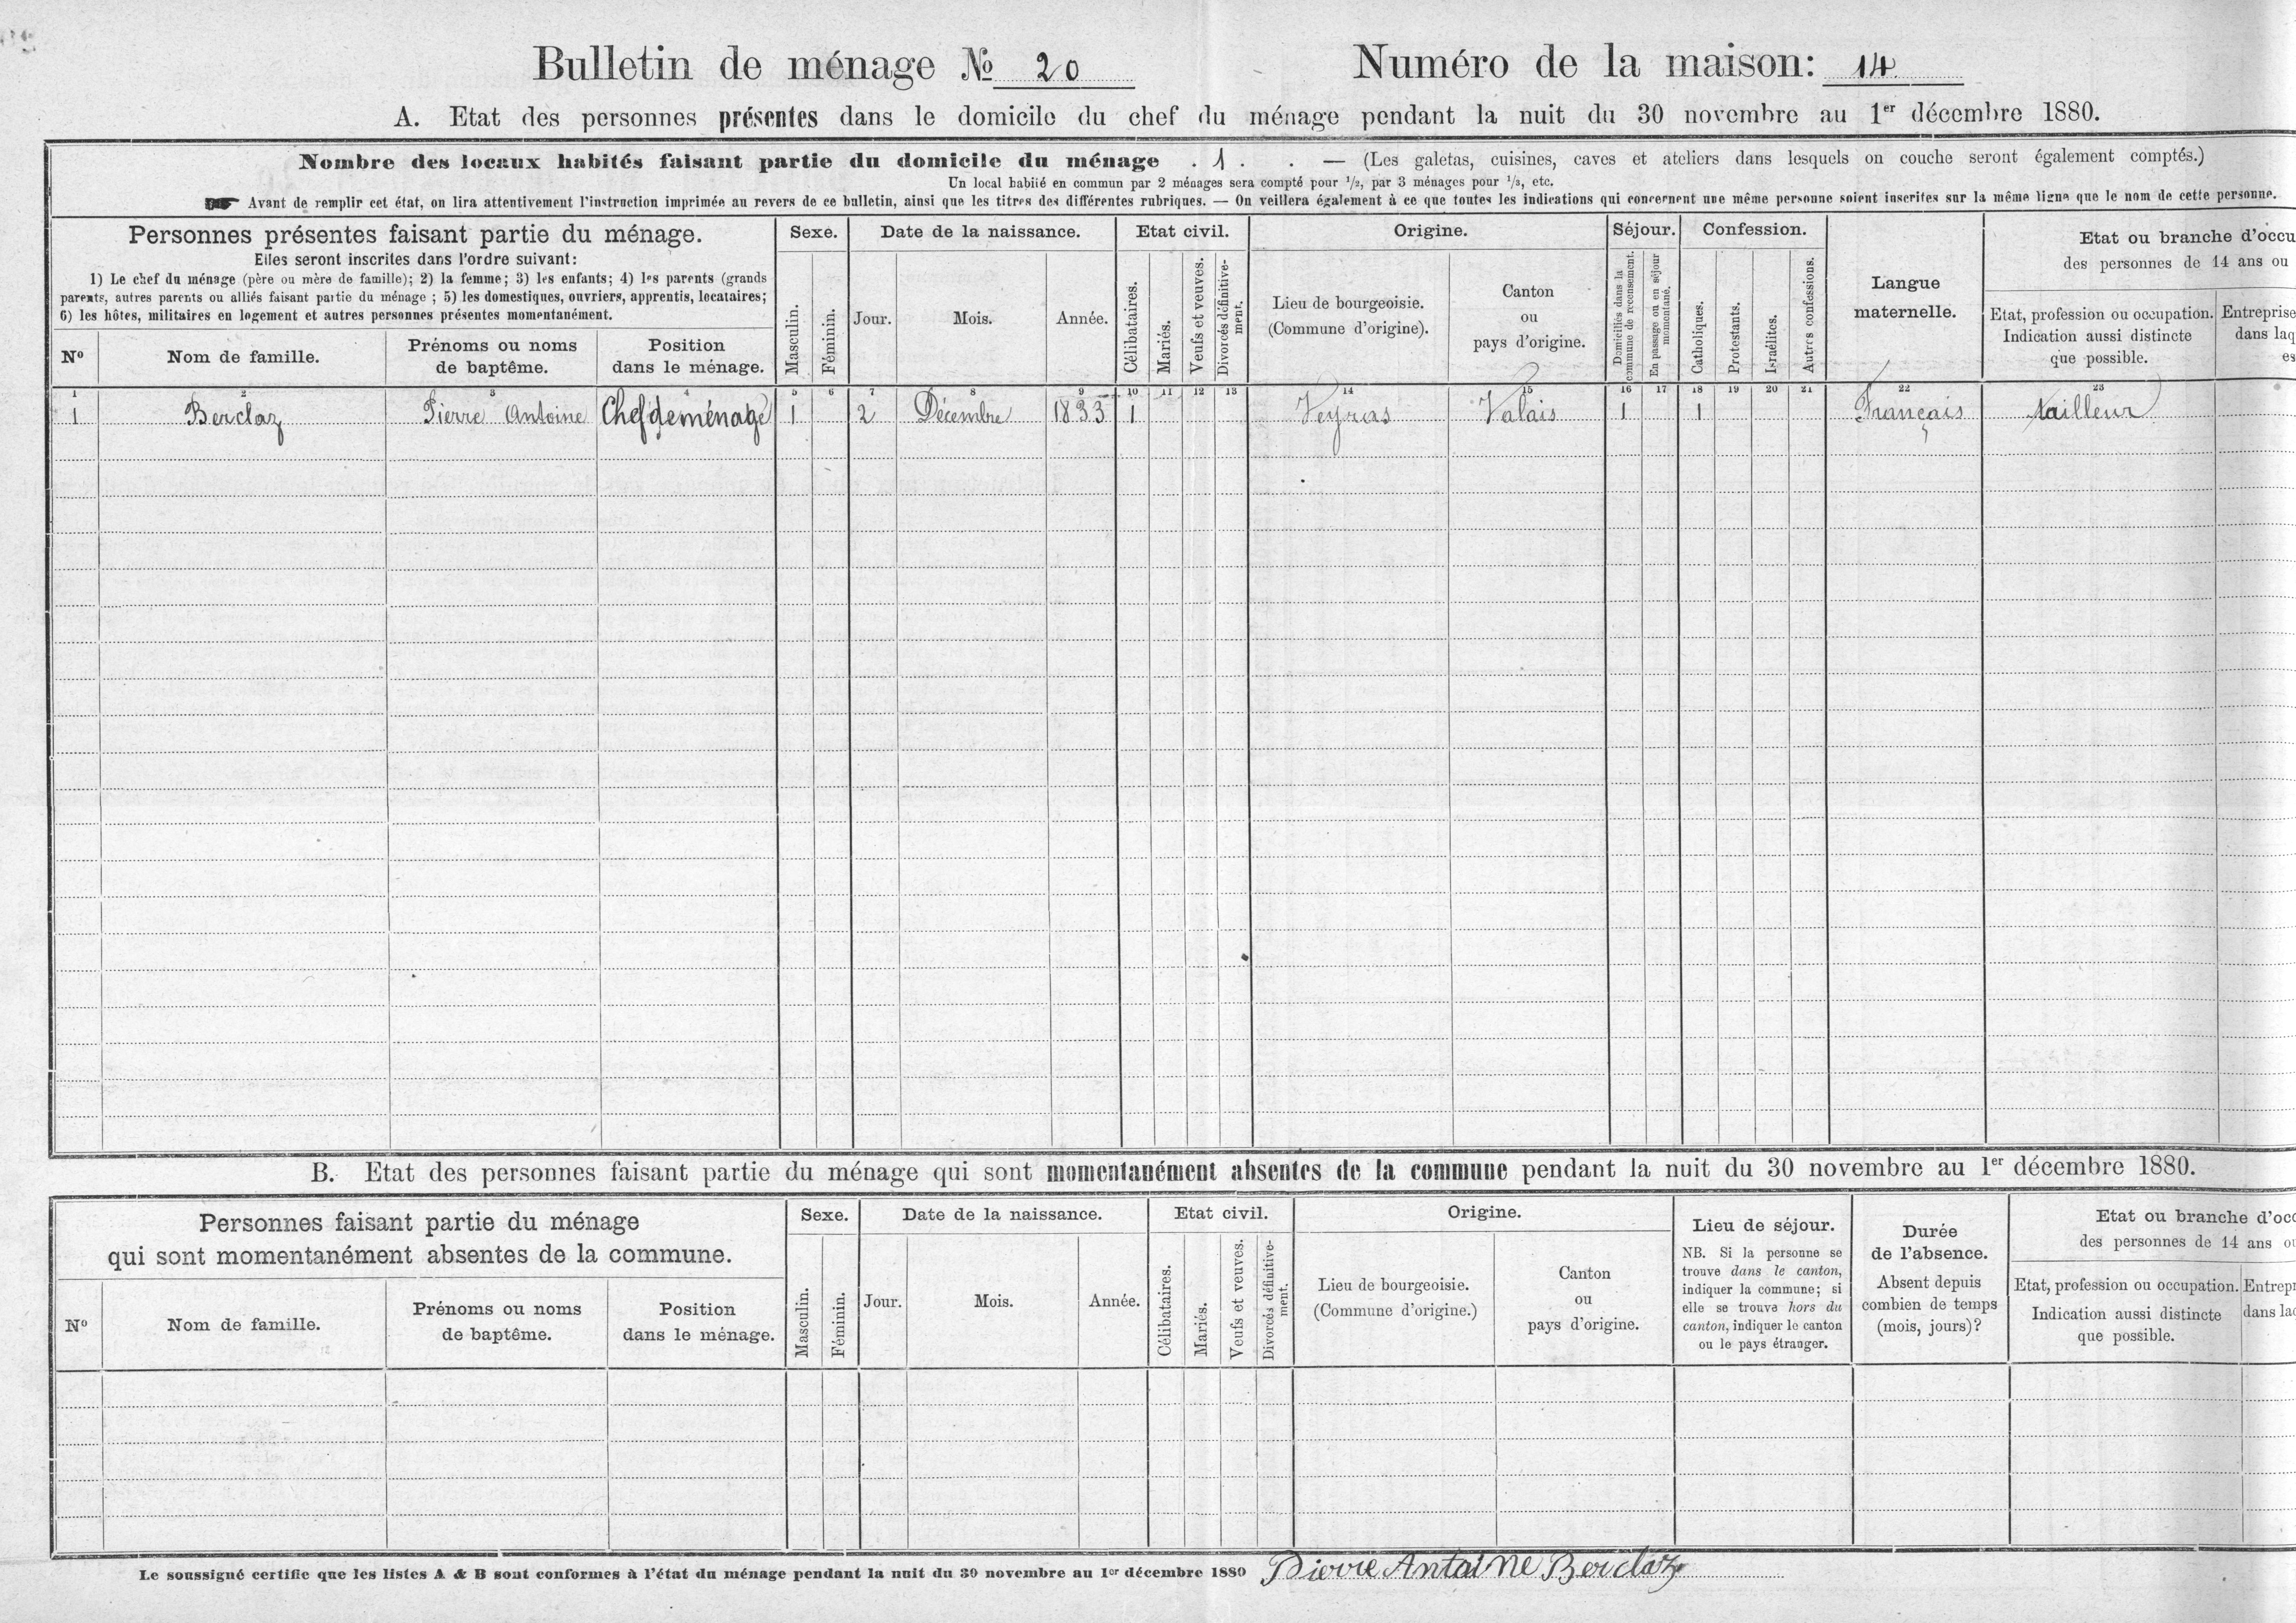 Bulletin de ménage No 20 Numéro de la maison: 14
A. Etat des personnes présentes dans le domicile du chef du ménage pendant la nuit du 30 novembre au 1er décembre 1880.
Nombre des locaux habités faisant partie du domicile du ménage . 1 . . — (Les galetas, cuisines, caves et ateliers dans lesquels on couche seront également comptés.)
Un local habité en commun par 2 ménages sera compté pour 1/2, par 3 ménages pour 1/3, etc.
Avant de remplir cet état, on lira attentivement l'instruction imprimée au revers de ce bulletin, ainsi que les titres des différentes rubriques. — On veillera également à ce que toutes les indications qui concernent une même personne soient inscrites sur la même ligne que le nom de cette personne.
Personnes présentes faisant partie du ménage.
Elles seront inscrites dans l'ordre suivant:
1) Le chef du ménage (père ou mère de famille); 2) la femme; 3) les enfants; 4) les parents (grands
parents, autres parents ou alliés faisant partie du ménage ; 5) les domestiques, ouvriers, apprentis, locataires;
6) les hôtes, militaires en logement et autres personnes présentes momentanément.
No
Nom de famille.
Prénoms ou noms
de baptême.
Position
dans le ménage.
Sexe.
Masculin.
Féminin.
Date de la naissance.
Jour.
Mois.
Année.
Etat civil.
Célibataires.
Mariés.
Veufs et veuves.
Divorcés définitive-
ment.
Origine.
Lieu de bourgeoisie.
(Commune d'origine).
Canton
ou
pays d'origine.
Séjour.
Domiciliés dans la
commune de recensement.
En passage ou en séjour
momentané.
Confession.
Catholiques.
Protestants.
Israélites.
Autres confessions.
Langue
maternelle.
Etat ou branche d'occu
des personnes de 14 ans ou
Etat, profession ou occupation.
Indication aussi distincte
que possible.
Entreprise
dans laq
es
1 2 3 4 5 6 7 8 9 10 11 12 13 14 15 16 17 18 19 20 21 22 23
1 Berclaz Pierre Antoine Chef de ménage 1 2 Décembre 1833 1 Veyras Valais 1 1 Français tailleur
B. Etat des personnes faisant partie du ménage qui sont momentanément absentes de la commune pendant la nuit du 30 novembre au 1er décembre 1880.
Personnes faisant partie du ménage
qui sont momentanément absentes de la commune.
No
Nom de famille.
Prénoms ou noms
de baptême.
Position
dans le ménage.
Sexe.
Masculin.
Féminin.
Date de la naissance.
Jour.
Mois.
Année.
Etat civil.
Célibataires.
Mariés.
Veufs et veuves.
Divorcés définitive-
ment.
Origine.
Lieu de bourgeoisie.
(Commune d'origine.)
Canton
ou
pays d'origine.
Lieu de séjour.
NB. Si la personne se
trouve dans le canton,
indiquer la commune; si
elle se trouve hors du
canton, indiquer le canton
ou le pays étranger.
Durée
de l'absence.
Absent depuis
combien de temps
(mois, jours)?
Etat ou branche d'occ
des personnes de 14 ans ou
Etat, profession ou occupation.
Indication aussi distincte
que possible.
Entrepr
dans laq
Le soussigné certifie que les listes A & B sont conformes à l'état du ménage pendant la nuit du 30 novembre au 1er décembre 1880 Pierre Antoine Berclaz